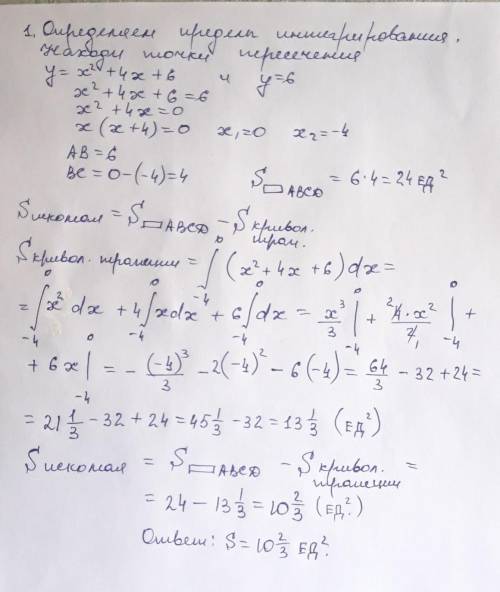 1. Определяем пределы интегрирования.
Находи точки пересечения
y = x² + 4x + 6 и y = 6
x² + 4x + 6 = 6
x² + 4x = 0
x (x + 4) = 0 x₁ = 0 x₂ = -4
AB = 6
BC = 0 - (-4) = 4 S▭ABCD = 6·4 = 24 ЕД²
Sискомая = S▭ABCD - Sкривол. трап.
Sкривол. трапеции = ∫₋₄⁰ (x² + 4x + 6) dx =
= ∫₋₄⁰ x² dx + 4 ∫₋₄⁰ x dx + 6 ∫₋₄⁰ dx = x³/3 |₋₄⁰ + 4·x²/2 |₋₄⁰ +
+ 6x |₋₄⁰ = - (-4)³/3 - 2(-4)² - 6(-4) = 64/3 - 32 + 24 =
= 21 1/3 - 32 + 24 = 45 1/3 - 32 = 13 1/3 (ЕД²)
Sискомая = S▭ABCD - Sкривол. трапеции =
= 24 - 13 1/3 = 10 2/3 (ЕД²)
Ответ: S = 10 2/3 ЕД².